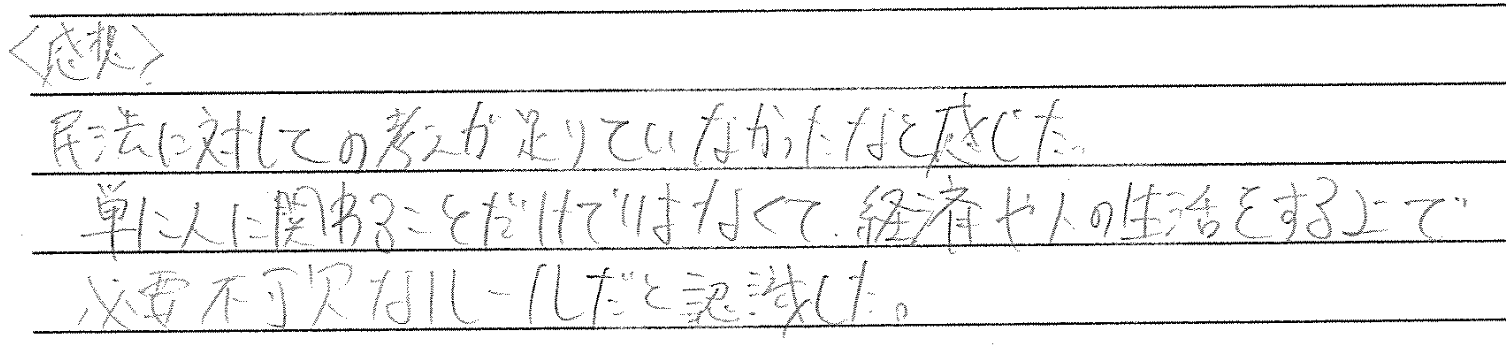 〈感想〉
民法に対しての考えが足りていなかったなと感じた。
単に人に関わることだけではなくて、経済や人の生活をする上で
必要不可欠なルールだと認識した。